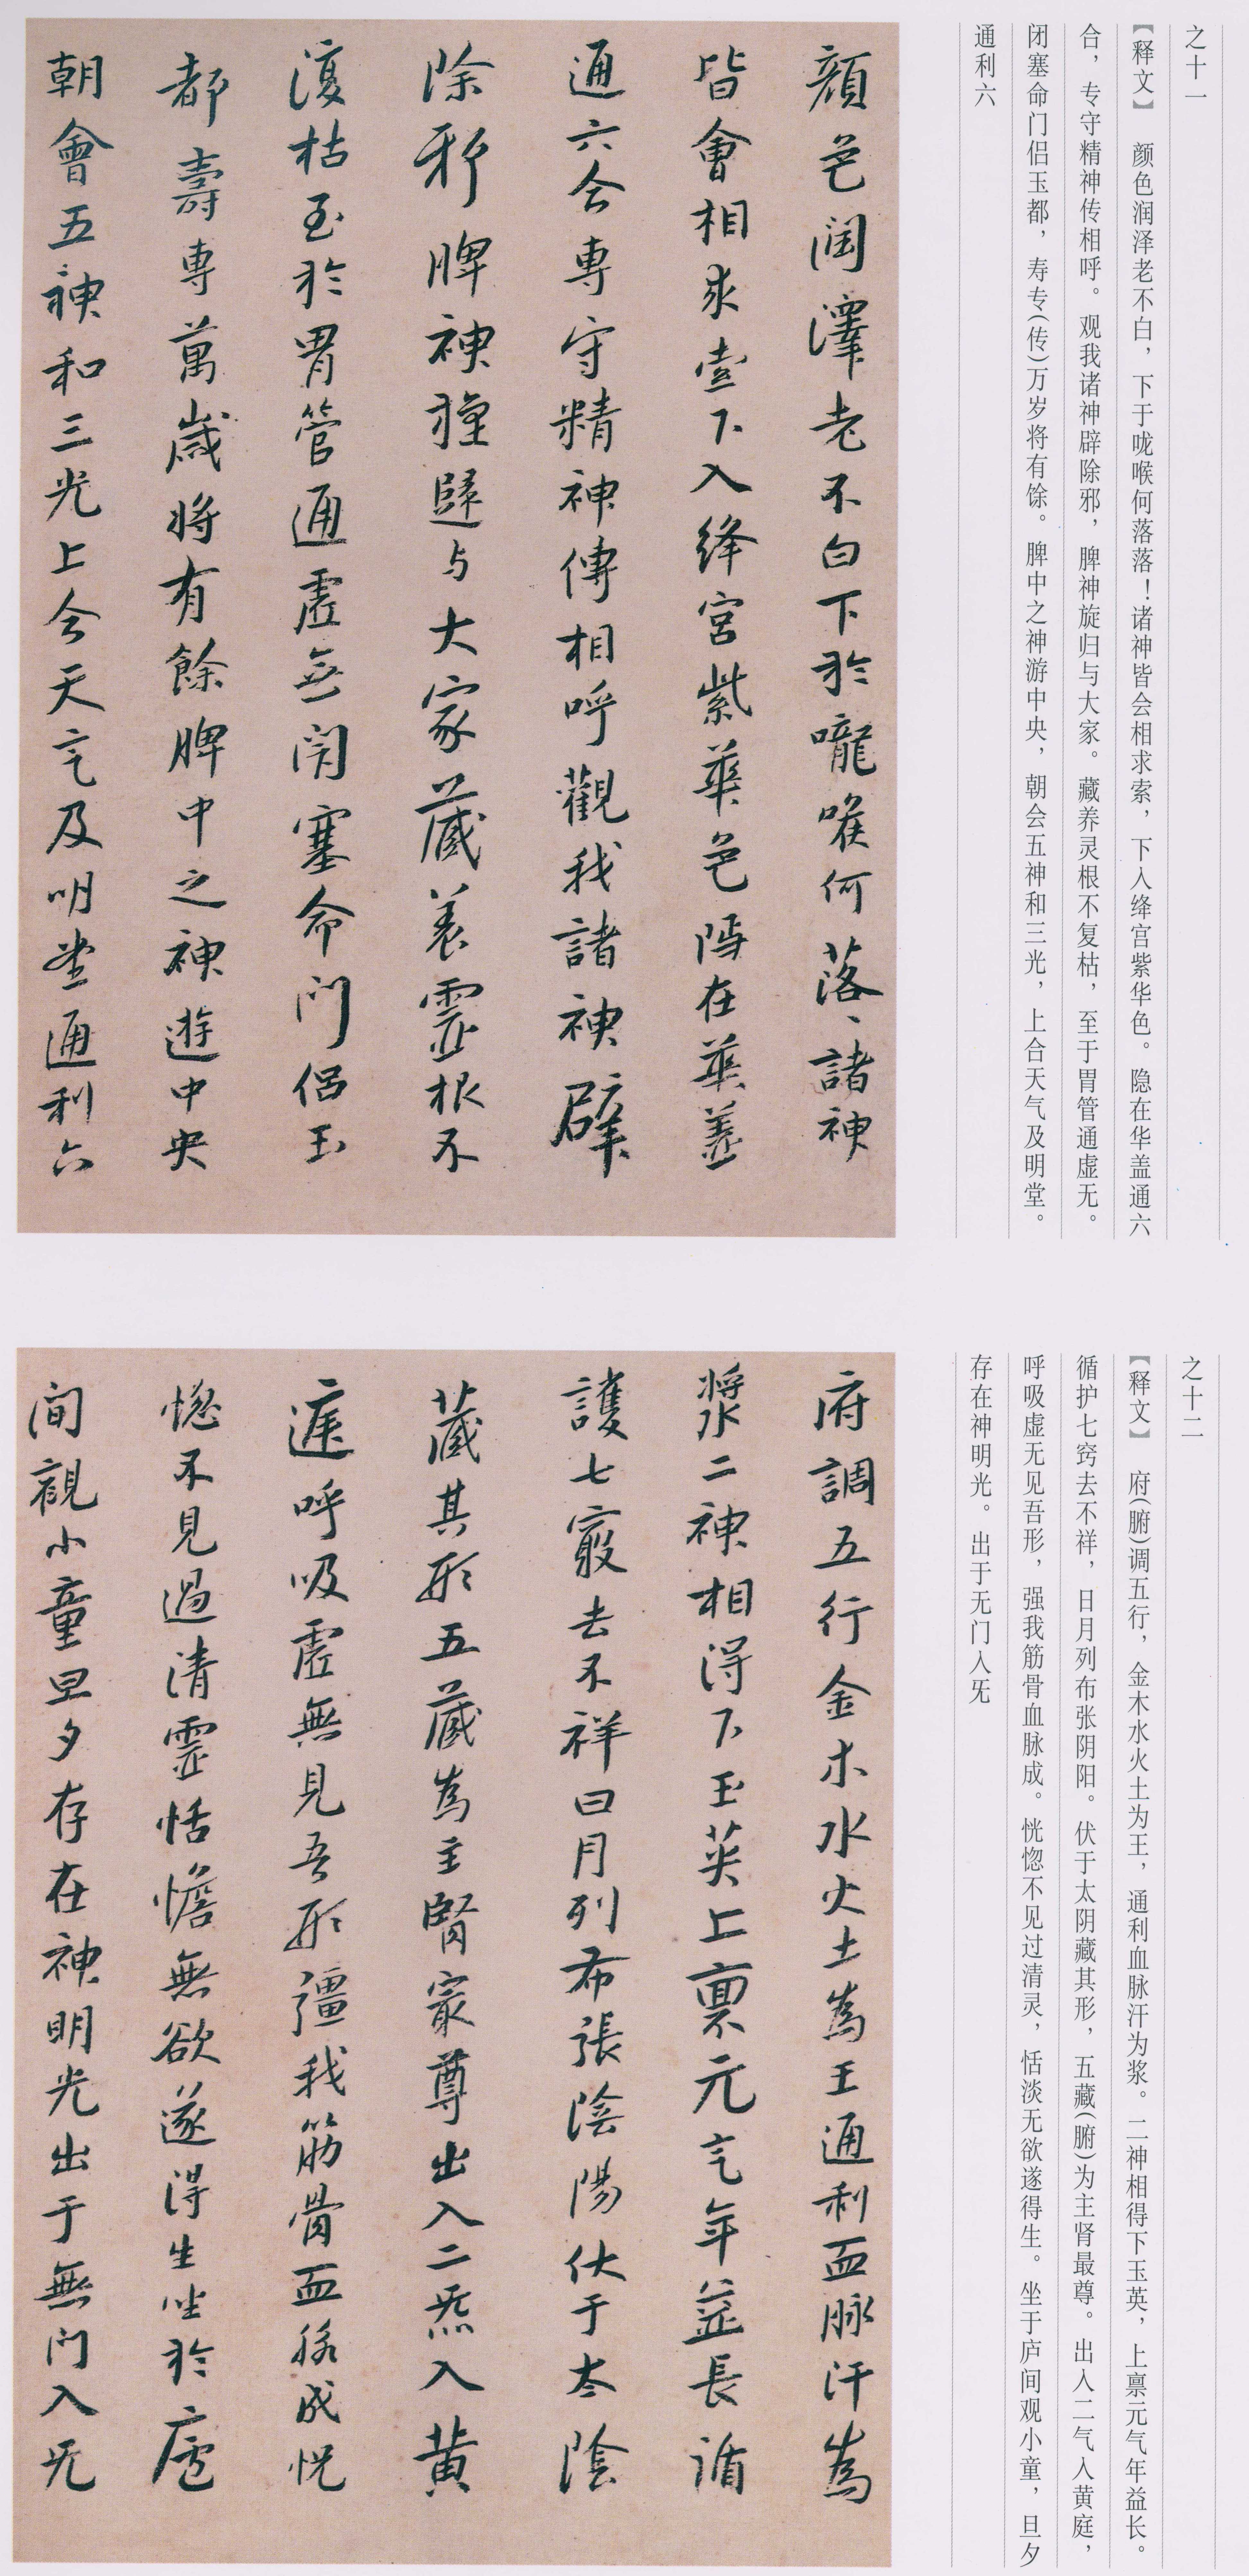 之十一
【释文】 颜色润泽老不白，下于咙喉何落落！诸神皆会相求索，下入绛宫紫华色。隐在华盖通六
合，专守精神传相呼。观我诸神辟除邪，脾神旋归与大家。藏养灵根不复枯，至于胃管通虚无。
闭塞命门侣玉都，寿专(传)万岁将有馀。脾中之神游中央，朝会五神和三光，上合天气及明堂。
通利六
顏色潤澤老不白下於嚨喉何落、諸神
皆會相求索下入絳宮紫華色隱在華蓋
通六合專守精神傳相呼觀我諸神辟
除邪脾神還歸与大家藏養靈根不
復枯至於胃管通虛無閉塞命門侶玉
都壽專萬歲将有餘脾中之神遊中央
朝會五神和三光上合天气及明堂通利六
之十二
【释文】 府(腑)调五行，金木水火土为王，通利血脉汗为浆。二神相得下玉英，上禀元气年益长。
循护七窍去不祥，日月列布张阴阳。伏于太阴藏其形，五藏(腑)为主肾最尊。出入二气入黄庭，
呼吸虚无见吾形，强我筋骨血脉成。恍惚不见过清灵，恬淡无欲遂得生。坐于庐间观小童，旦夕
存在神明光。出于无门入旡
府調五行金木水火土為王通利血脉汗為
漿二神相得下玉英上禀元气年益長循
護七竅去不祥日月列布張陰陽伏于太陰
藏其形五藏為主腎最尊出入二炁入黃
庭呼吸虛無見吾形彊我筋骨血脉成恍
惚不見過清靈恬憺無欲遂得生坐於廬
間觀小童旦夕存在神明光出于無門入旡